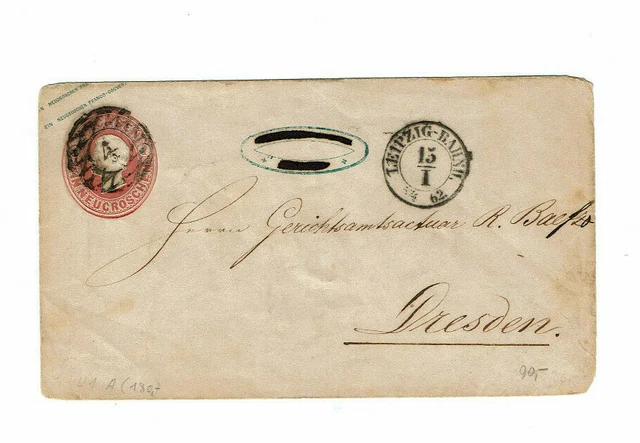 EIN NEUGROSCHEN
EIN NEUGROSCHEN FRANCO-COUVERT
EIN NEUGROSCHEN
LEIPZIG-BAHNH.
15
I
62
Herrn Gerichtsamtsactuar R.
Dresden.
U1 A (130,-
90,-